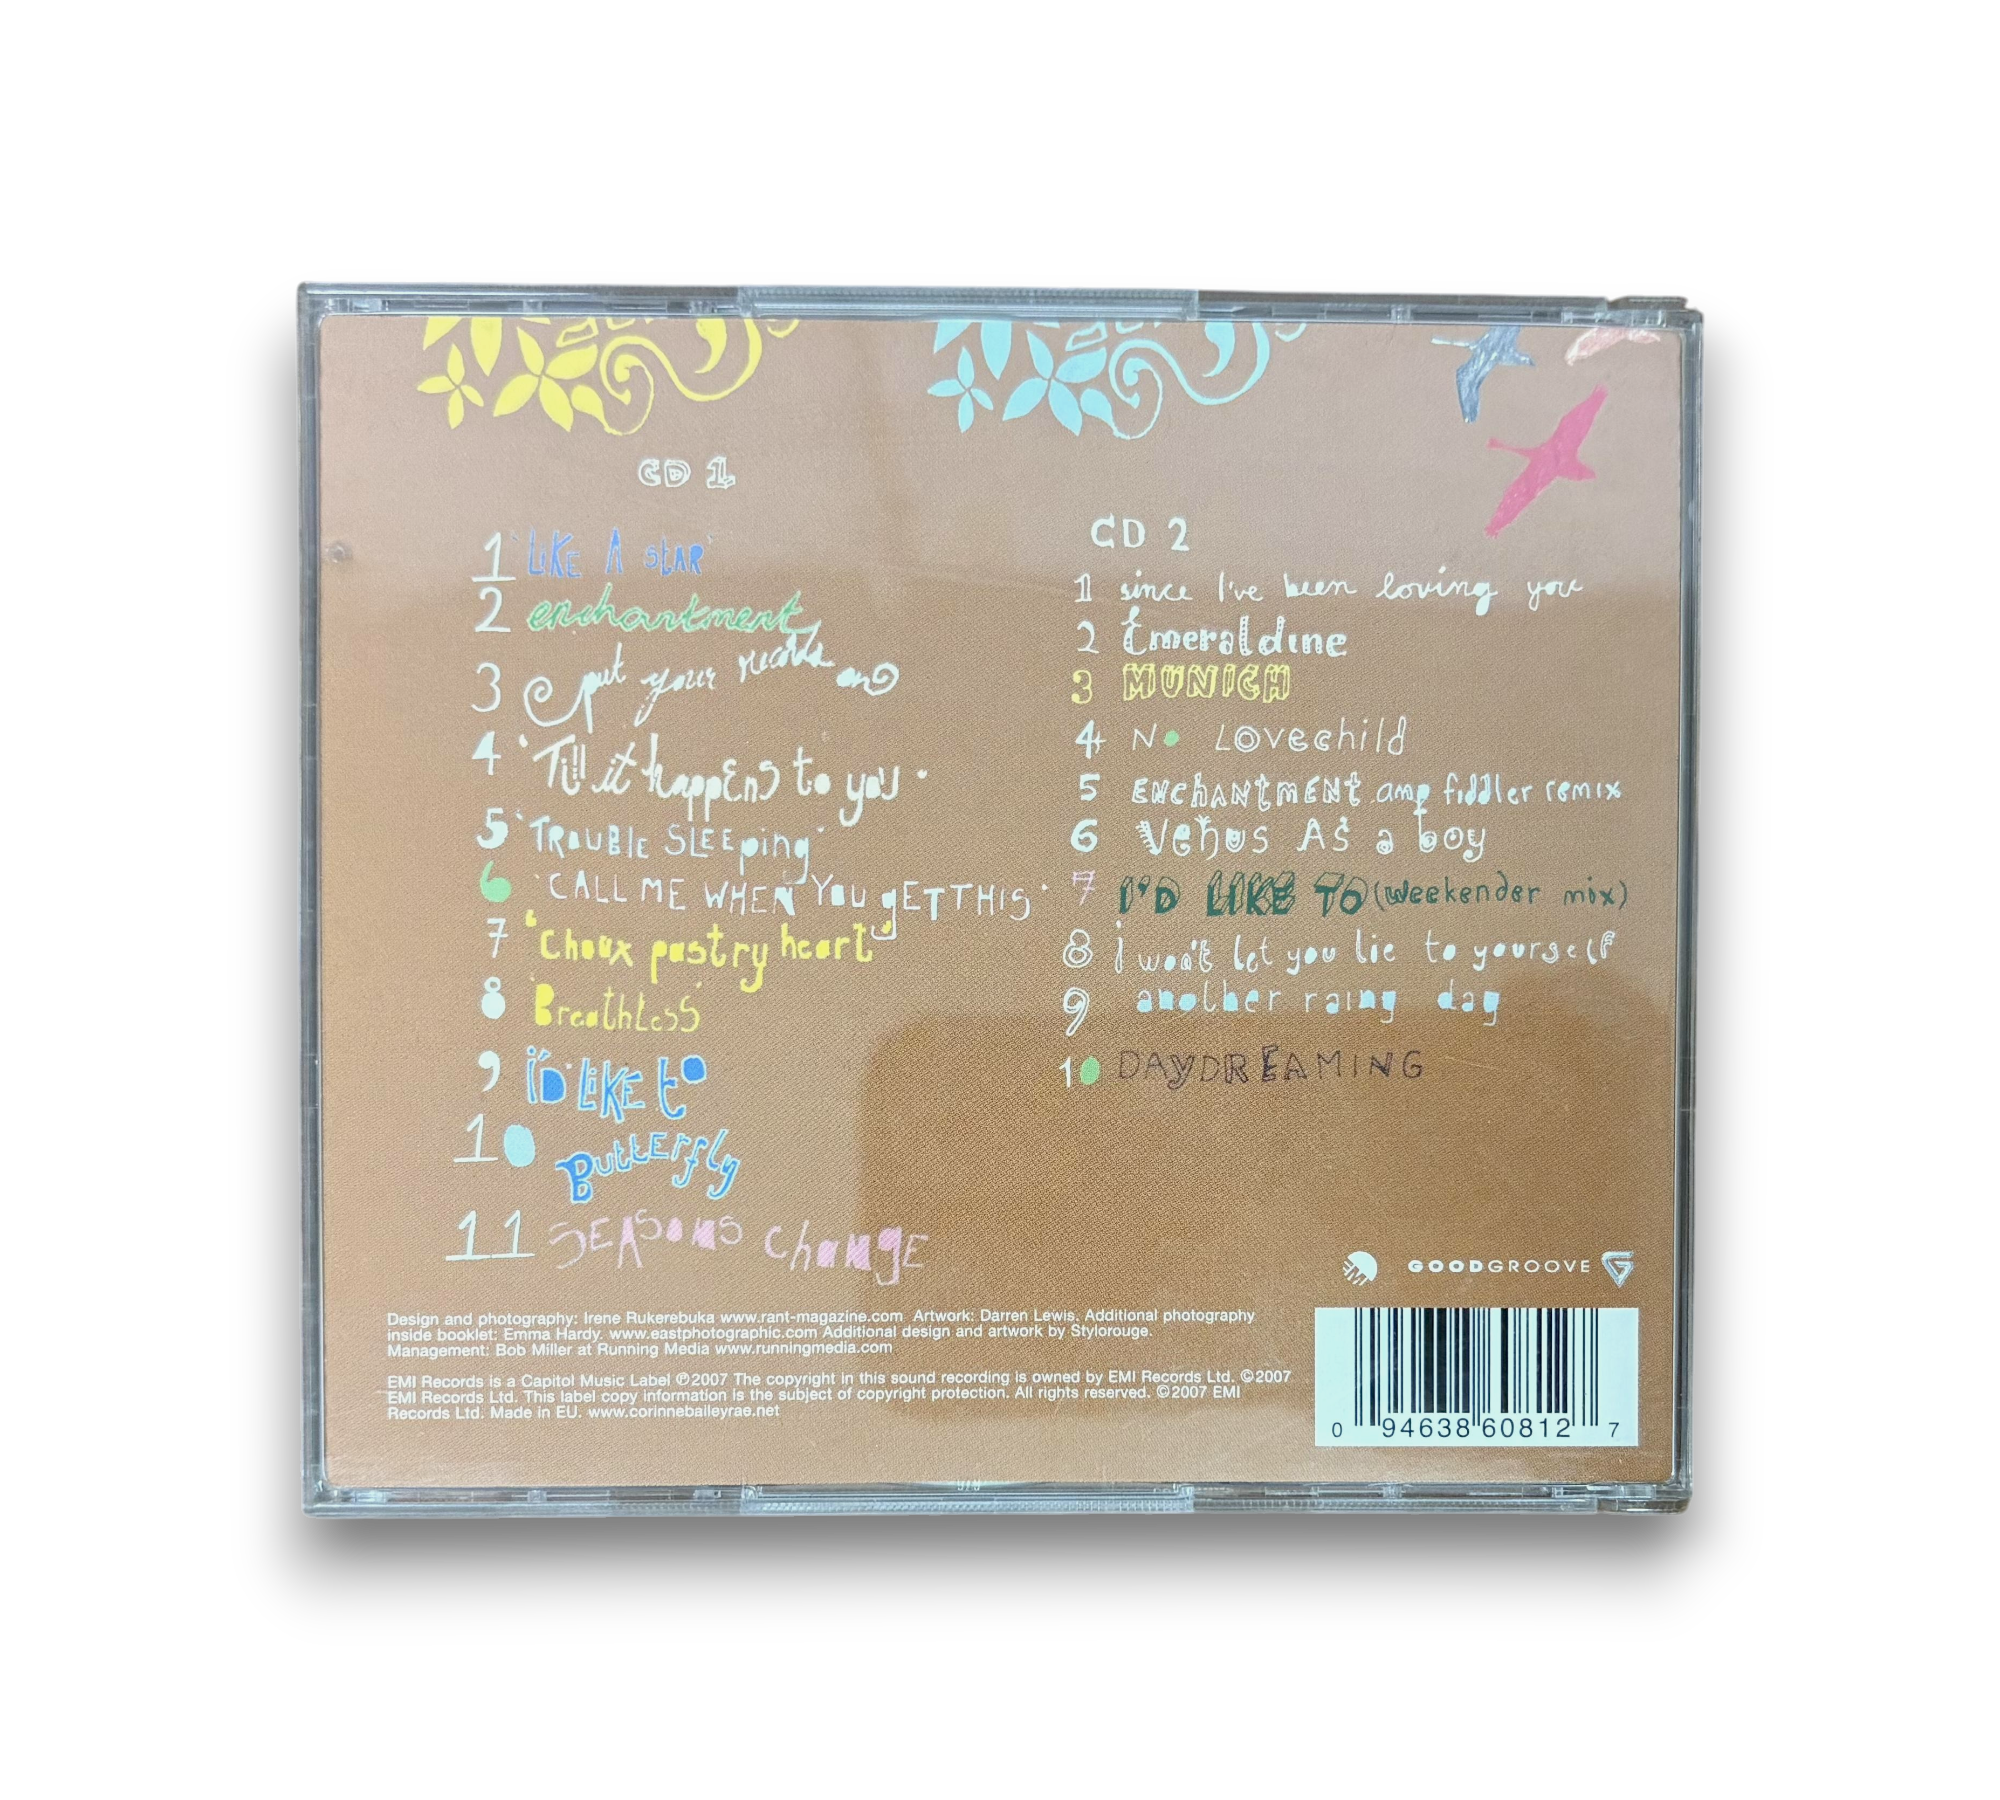 CD 1
1 'LIKE A STAR'
2 enchantment
3 put your records on
4 'Till it happens to you'
5 'TROUBLE SLEEping'
6 'CALL ME WHEN YOU gET THIS'
7 'Choux pastry heart'
8 'Breathless'
9 i'D LIKE to
10 ButtErfly
11 SEASONS ChangE
CD 2
1 since I've been loving you
2 Emeraldine
3 MUNICH
4 No LOvechild
5 ENChANtmENt amp fiddler remix
6 Venus As a boy
7 I'D LIKE TO (weekender mix)
8 i won't let you lie to yourself
9 another rainy day
10 DAyDREAMING
EMI
GOODGROOVE G
Design and photography: Irene Rukerebuka www.rant-magazine.com Artwork: Darren Lewis. Additional photography
inside booklet: Emma Hardy. www.eastphotographic.com Additional design and artwork by Stylorouge.
Management: Bob Miller at Running Media www.runningmedia.com
EMI Records is a Capitol Music Label ℗2007 The copyright in this sound recording is owned by EMI Records Ltd. ©2007
EMI Records Ltd. This label copy information is the subject of copyright protection. All rights reserved. ©2007 EMI
Records Ltd. Made in EU. www.corinnebaileyrae.net
0 94638 60812 7